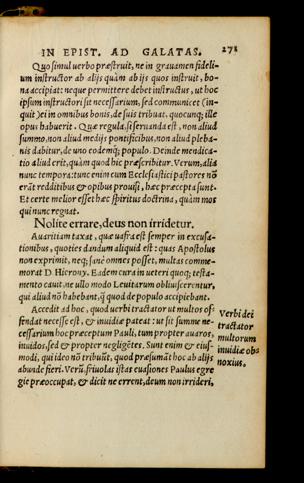 IN EPIST. AD GALATAS. 278
Quo simul verbo præstruit, ne in grauamen fideli-
um instructor ab alijs quàm ab ijs quos instruit, bo-
na accipiat: neque permittere debet instructus, ut hoc
ipsum instructori sit necessarium, sed communicet (in-
quit) ei in omnibus bonis, de suis tribuat, quocunq; ille
opus habuerit. Quæ regula si seruanda est, non aliud
summo, non aliud medijs pontificibus, non aliud pleba-
nis dabitur, de uno eodemq; populo. Deinde mendica-
tio aliud erit, quàm quod hic præscribitur. Verum, alia
nunc tempora: tunc enim cum Ecclesiastici pastores nõ
erãt redditibus & opibus prouisi, hæc præcepta sunt.
Et certe melior esset hæc spiritus doctrina, quàm mos
qui nunc regnat.
Nolite errare, deus non irridetur.
Auaritiam taxat, quæ uafra est semper in excusa-
tionibus, quoties dandum aliquid est: quas Apostolus
non exprimit, neq; sanè omnes posset, multas comme-
morat D. Hierony. Eadem cura in ueteri quoq; testa-
mento cauit, ne ullo modo Leuitarum obliuiscerentur,
qui aliud nõ habebant, q̃ quod de populo accipiebant.
Accedit ad hoc, quod uerbi tractator ut multos of-
fendat necesse est, & inuidiæ pateat: ut sit summe ne-
cessarium hoc præceptum Pauli, tum propter auaros,
inuidos, sed & propter negligẽtes. Sunt enim & eius-
modi, qui ideo nõ tribuũt, quod præsumãt hoc ab alijs
abunde fieri. Verũ, friuolas istas euasiones Paulus egre
gie præoccupat, & dicit ne errent, deum non irrideri,
Verbi dei
tractator
multorum
inuidiæ ob-
noxius.